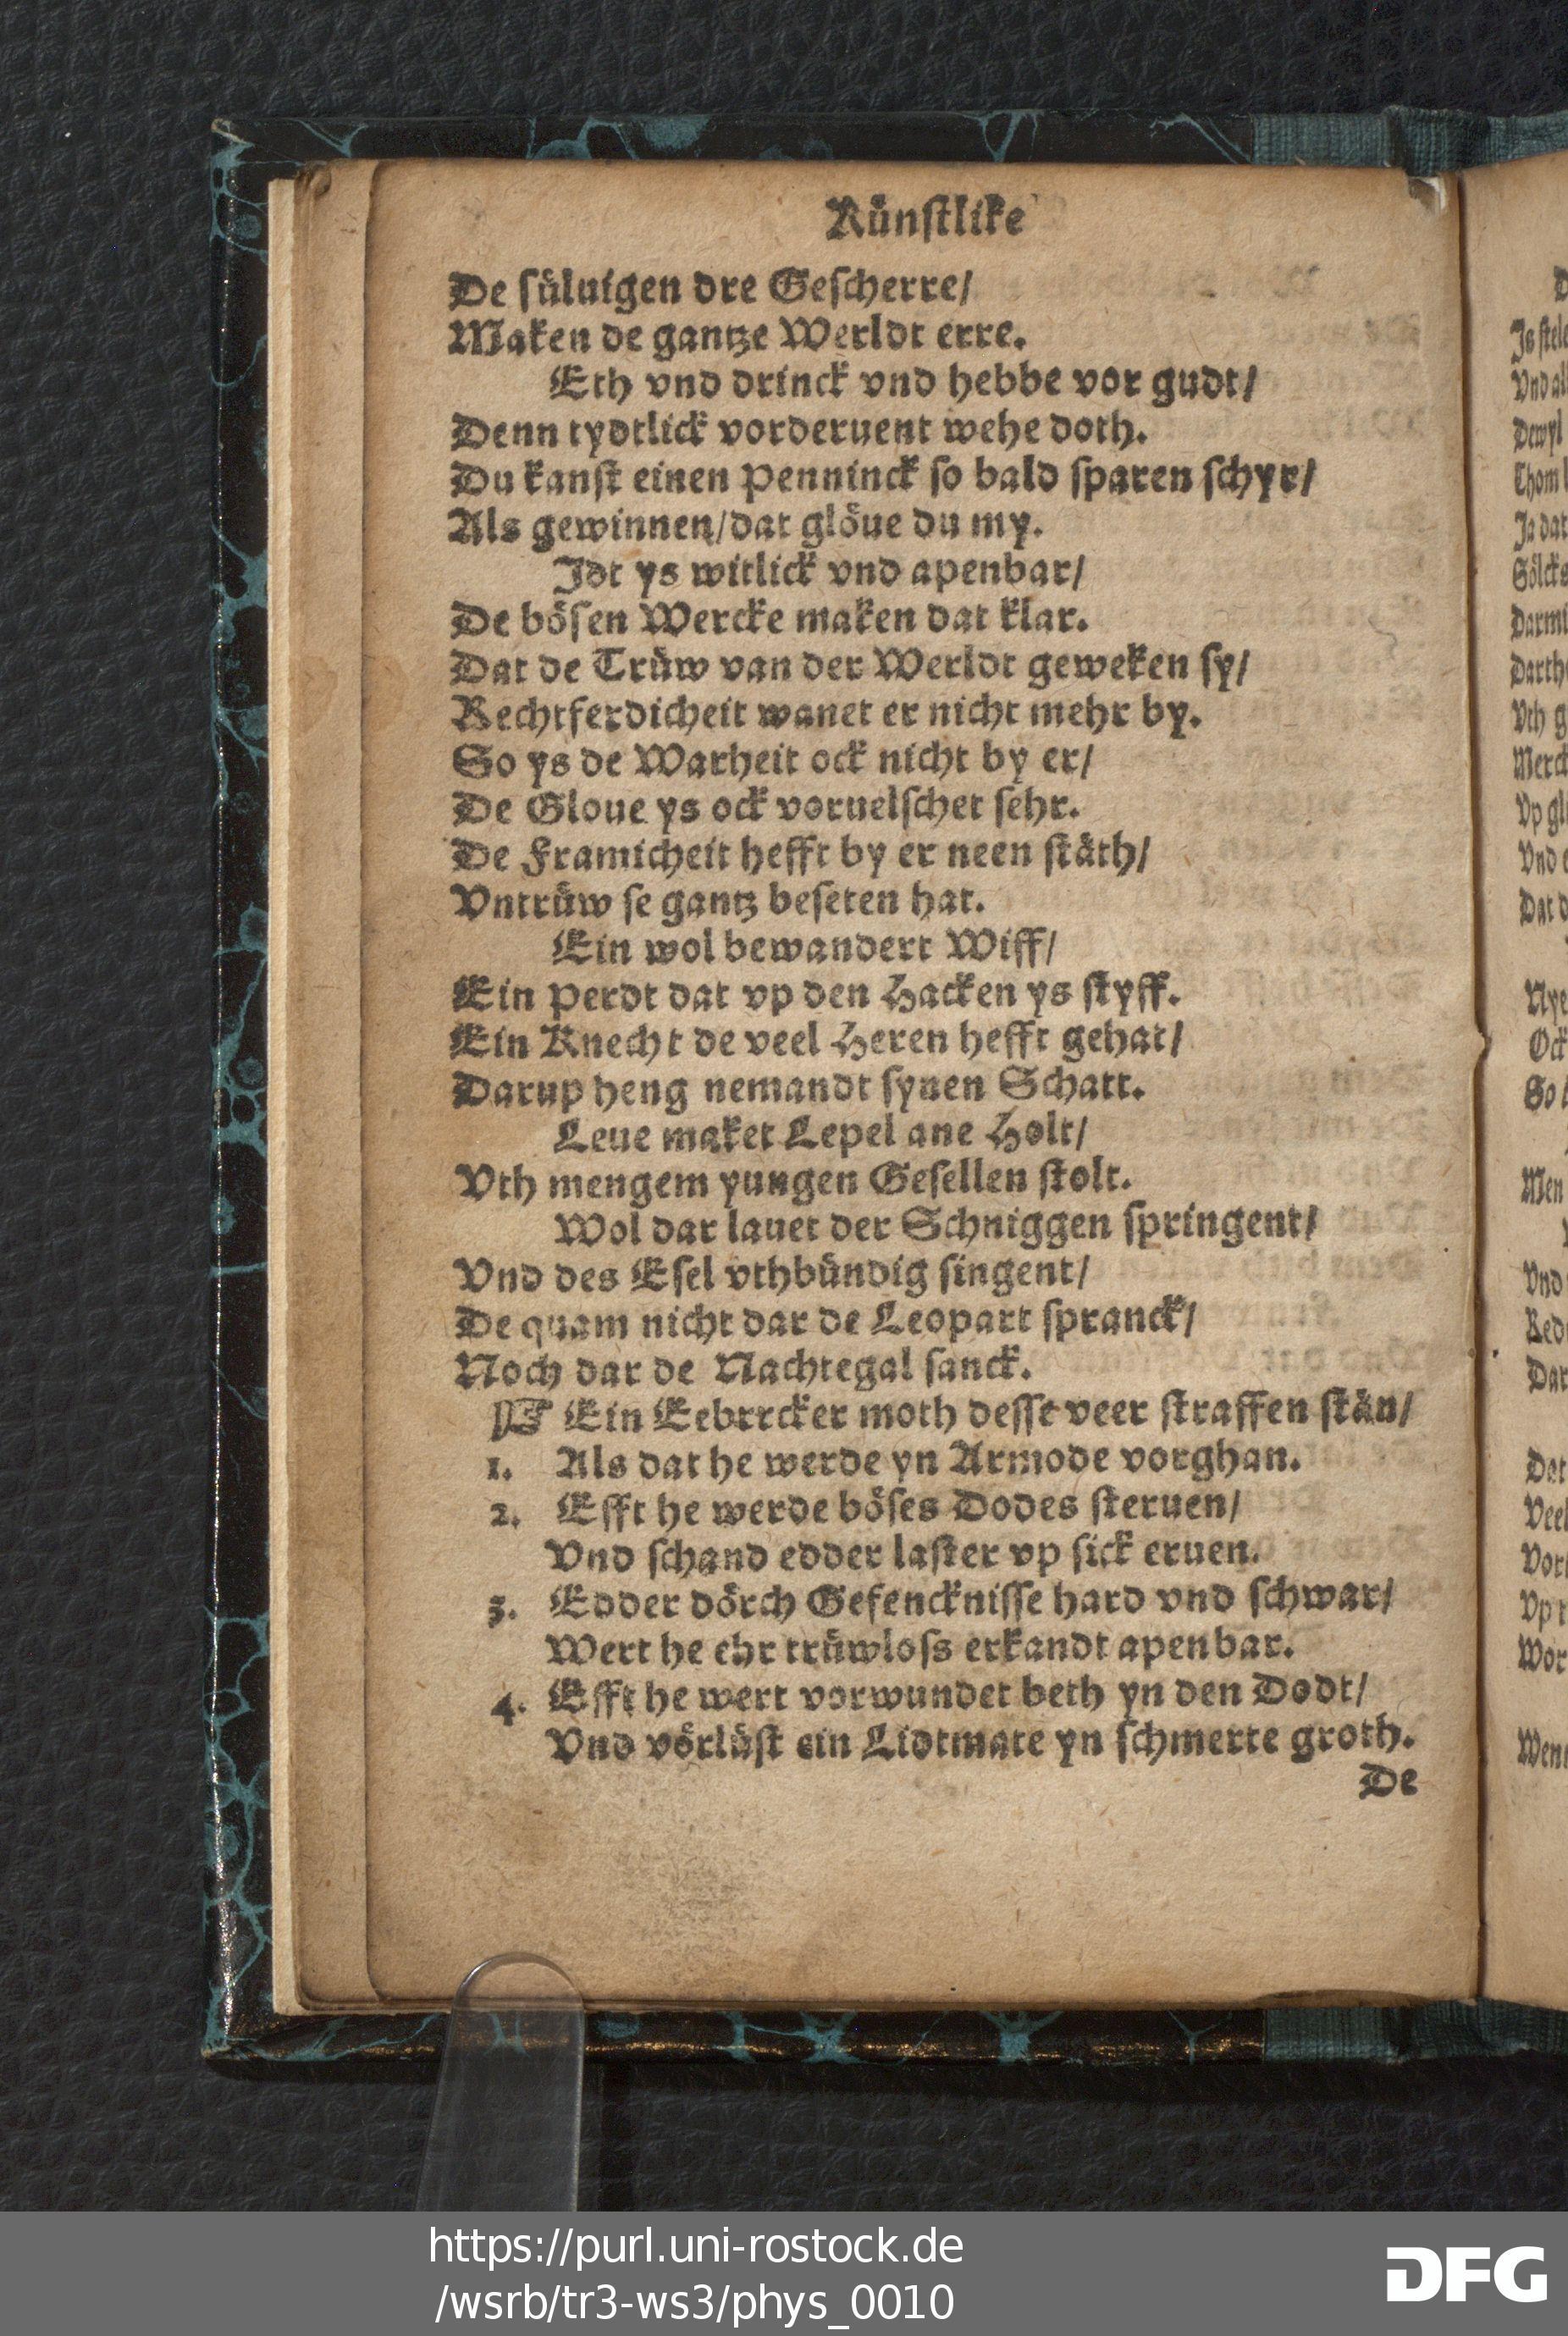 Künſtlike
De ſüluigen dre Geſcherre/
Maken de gantze Werldt erre.
Eth vnd drinck vnd hebbe vor gudt/
Denn tydtlick vorderuent wehe doth.
Du kanſt einen Penninck ſo bald ſparen ſchyr/
Als gewinnen/dat glöue du my.
Jdt ys witlick vnd apenbar/
De böſen Wercke maken dat klar.
Dat de Trüw van der Werldt geweken ſy/
Rechtferdicheit wanet er nicht mehr by.
So ys de Warheit ock nicht by er/
De Gloue ys ock voruelſchet ſehr.
De Framicheit hefft by er neen ſtäth/
Vntrüw ſe gantz beſeten hat.
Ein wol bewandert Wiff/
Ein Perdt dat vp den Hacken ys ſtyff.
Ein Knecht de veel Heren hefft gehat/
Darup heng nemandt ſynen Schatt.
Leue maket Lepel ane Holt/
Vth mengem yungen Geſellen ſtolt.
Wol dar lauet der Schniggen ſpringent/
Vnd des Eſel vthbündig ſingent/
De quam nicht dar de Leopart ſpranck/
Noch dar de Nachtegal ſanck.
Ein Eebrrcker moth deſſe veer ſtraffen ſtän/
1. Als dat he werde yn Armode vorghan.
2. Efft he werde böſes Dodes ſteruen/
Vnd ſchand edder laſter vp ſick eruen.
3. Edder dörch Gefenckniſſe hard vnd ſchwar/
Wert he ehr trüwloſs erkandt apenbar.
4. Efft he wert vorwundet beth yn den Dodt/
Vnd vörlüſt ein Lidtmate yn ſchmerte groth.
De
https://purl.uni-rostock.de
/wsrb/tr3-ws3/phys_0010
DFG